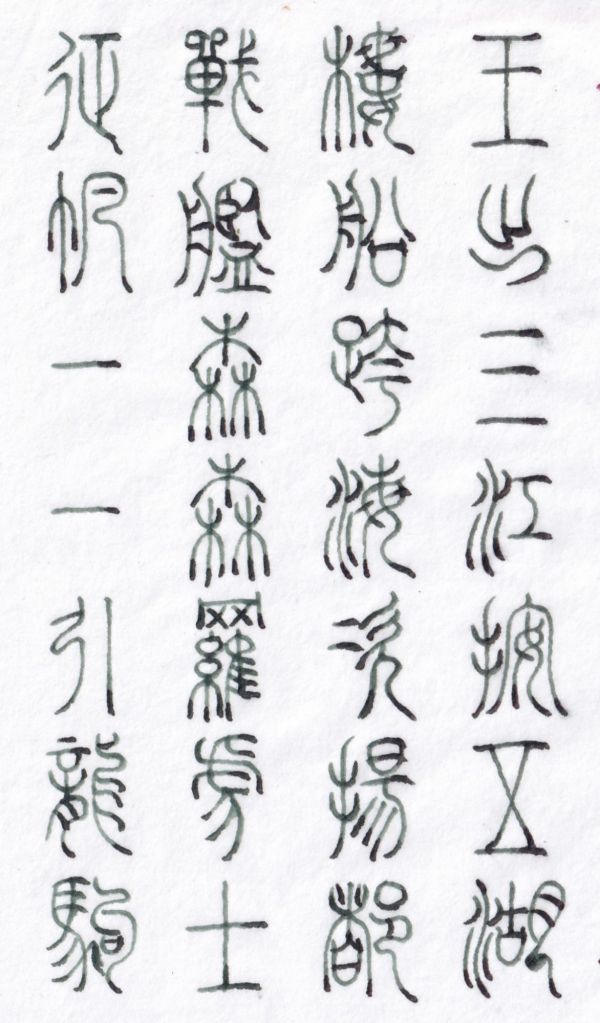 王出三江按五湖
樓船跨海次揚都
戰艦森森羅虎士
征帆一一引龍駒